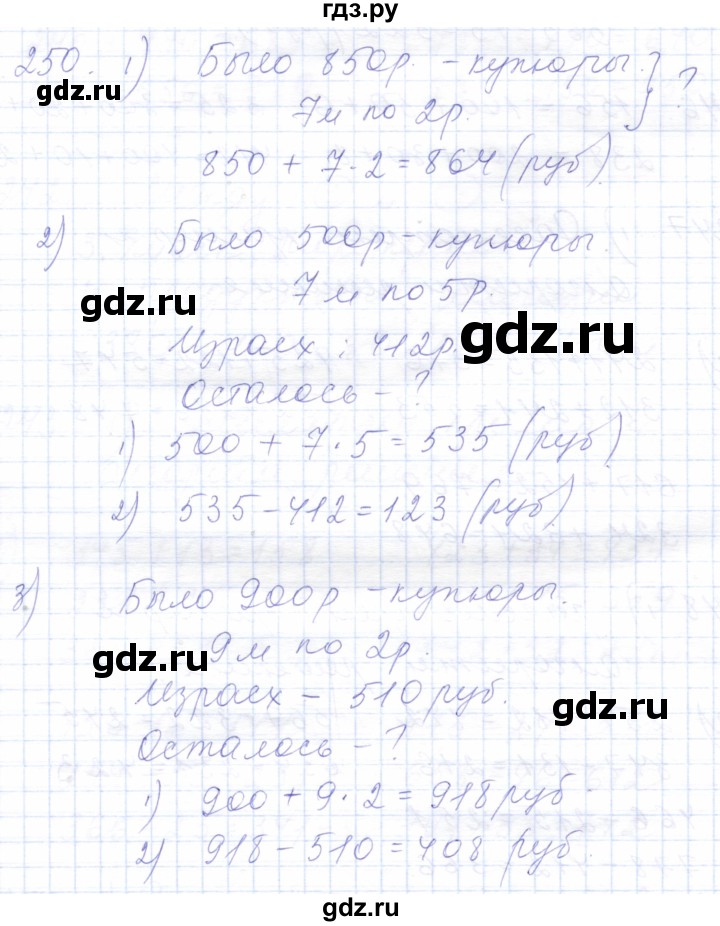 гдз.ру
250. 1) Было 850р. - купюры. } ?
7м по 2р.
850 + 7·2 = 864 (руб).
2) Было 500р - купюры.
7м по 5р.
gdz.ru
Израсх : 412р.
gdz.ru
Осталось - ?
1) 500 + 7·5 = 535 (руб)
2) 535 - 412 = 123 (руб).
3) Было 900р - купюры.
9м по 2р.
gdz.ru
Израсх - 510 руб.
gdz.ru
Осталось - ?
1) 900 + 9·2 = 918 руб.
2) 918 - 510 = 408 руб.
gdz.ru